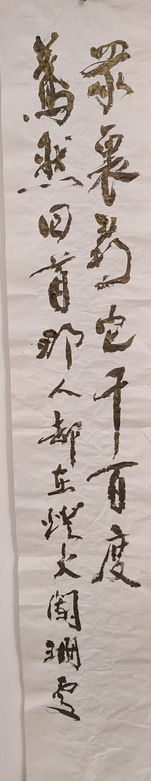 眾裏尋它千百度
驀然回首那人卻在燈火闌珊處